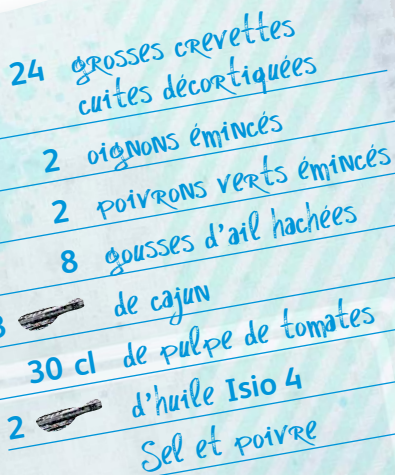 24 grosses crevettes
cuites décortiquées
2 oignons émincés
2 poivrons verts émincés
8 gousses d'ail hachées
3 de cajun
30 cl de pulpe de tomates
2 d'huile Isio 4
Sel et poivre